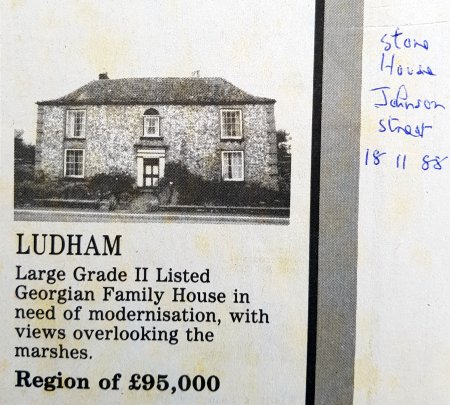 LUDHAM
Large Grade II Listed
Georgian Family House in
need of modernisation, with
views overlooking the
marshes.
Region of £95,000
Stone
House
Johnson
Street
18 11 88